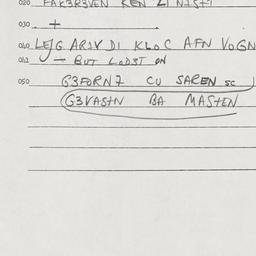 020 FAK3R3VEN KEN
030 +
040 LEJG ARSV DI KLOC AFN VOGN
041 — BUT LODST ON
050 G3FORN7 CU SAREN SC
G3VASTN BA MASTEN